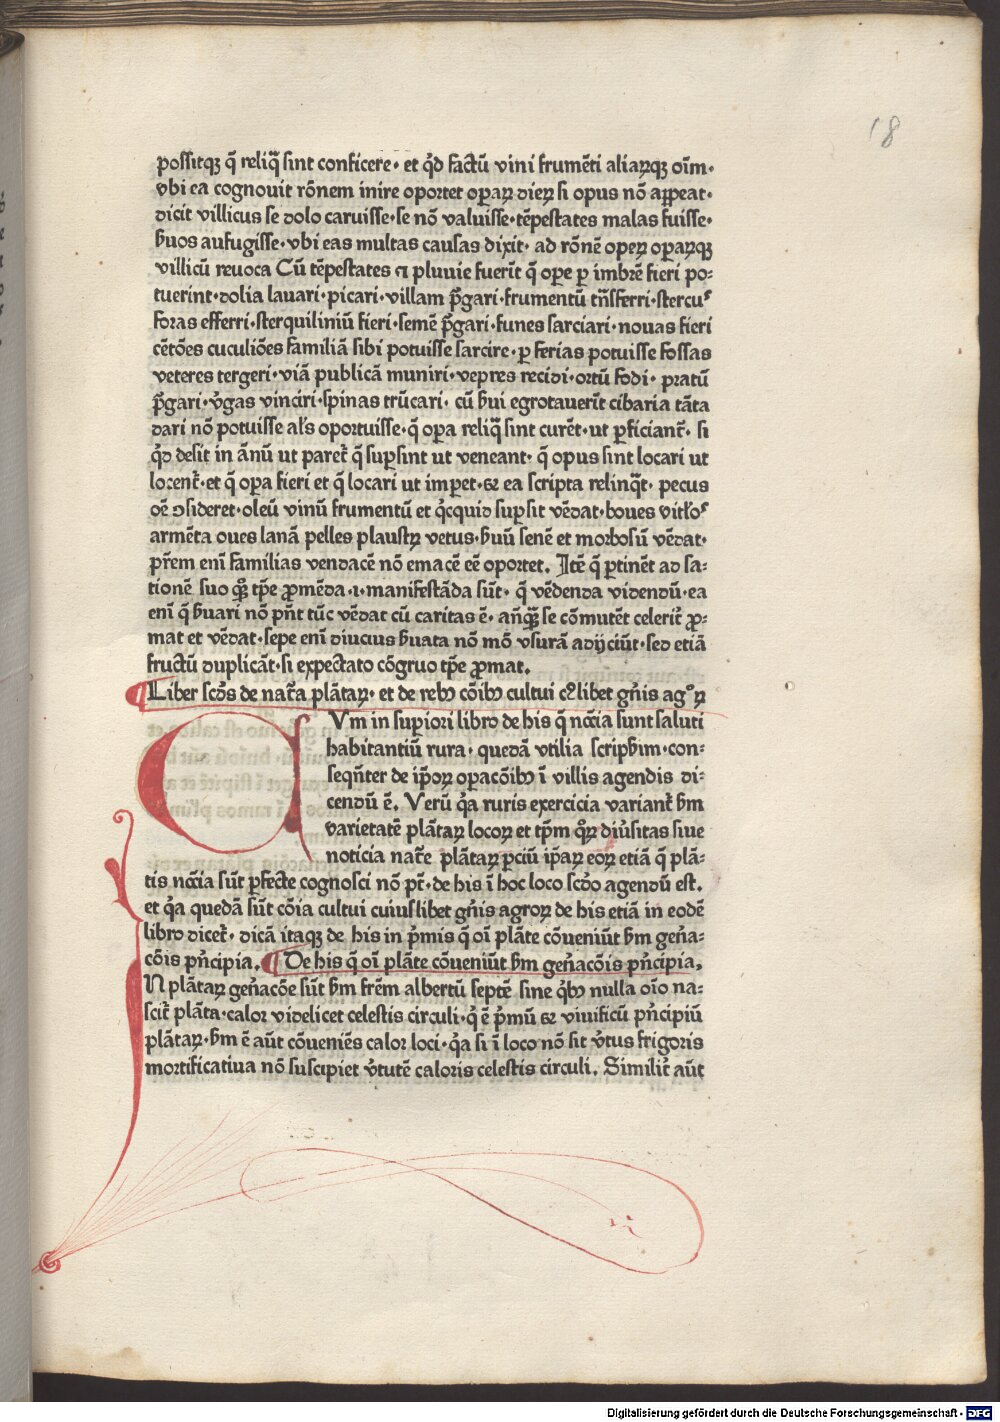 18
possitqꝫ q̄ reliq̄ sint conficere· et qd̛ factū vini frumēti aliaꝝqꝫ oīm·
vbi ea cognouit rōnem inire oportet oꝑaꝝ dieꝝ si opus nō aꝑpeat·
dicit villicus se dolo caruisse·se nō valuisse·tēpestates malas fuisse·
buos aufugisse·vbi eas multas causas dixit· ad rōnē opeꝝ oꝑaꝝqꝫ
villicū reuoca Cū tēpestates ⁊ pluuie fuerīt q̄ oꝑe ꝑ imbrē fieri po⸗
tuerint·dolia lauari·picari·villam p̄gari·frumentū tn̄sferri·stercuꝰ
foras efferri·sterquiliniū fieri·semē p̄gari·funes sarciari·nouas fieri
cētōes cuculiōes familiā sibi potuisse sarcire·ꝑ ferias potuisse fossas
veteres tergeri·viā publicā muniri·vepres recidi·ortū fodi· pratū
p̄gari·v̄gas vinciri·spinas trūcari· cū bui egrotauerīt cibaria tāta
dari nō potuisse al's oportuisse·q̄ oꝑa reliq̄ sint curēt·ut ꝑficiant̄· si
qd̛ desit in ānū ut paret̄ q̄ suꝑsint ut veneant· q̄ opus sint locari ut
locent̄·et q̄ oꝑa fieri et q̄ locari ut imꝑet·⁊ ea scripta relinq̄t· pecus
oē ꝯsideret·oleū vinū frumentū et qͥcquid suꝑsit vēdat·boues vitl'oꝰ
armēta oues lanā pelles plaustꝝ vetus·buū senē et morbosū vēdat·
pr̄em enī familias vendacē nō emacē eē oportet. Itē q̄ ꝑtinēt ad sa⸗
tionē suo qͦꝫ tp̄e ꝓmēda ·ı· manifestāda sūt· q̄ vēdenda videndū·ea
enī q̄ ƀuari nō pn̄t tūc vēdat cū caritas ē· an̄qͣꝫ se cōmutēt celerit̄ ꝓ⸗
mat et vēdat·sepe enī diucius ƀuata nō mō vsurā adijciūt·sed etiā
fructū duplicāt·si expectato cōgruo tp̄e ꝓmat.
¶Liber scd̄s de nat̄a plātaꝝ· et de rebꝫ cōibꝫ cultui cꝰlibet gn̄is agͦꝝ
CVm in suꝑiori libro de his q̄ nc̄cia sunt saluti
habitantiū rura· quedā vtilia scripƀim·con⸗
seqn̄ter de ip̄oꝝ oꝑacōibꝫ ī villis agendis di⸗
cendū ē. Verū qͥa ruris exercicia variant̄ ƀm
varietatē plātaꝝ locoꝝ et tp̄m qͦꝝ diu̓sitas siue
noticia nat̄e plātaꝝ ꝑciū ip̄aꝝ eoꝝ etiā q̄ plā⸗
tis nc̄cia sūt ꝑfecte cognosci nō pt̄·de his ī hoc loco scd̄o agendū est.
et qͥa quedā sūt cōia cultui cuiuslibet gn̄is agroꝝ de his etiā in eodē
libro dicet̄· dicā itaqꝫ de his in p̄mis q̄ oī plāte cōueniūt ƀm gen̄a⸗
cōis pn̄cipia. ¶De his q̄ oī plāte cōueniūt ƀm gen̄acōis pn̄cipia.
IN plātaꝝ gen̄acōe sūt ƀm frēm albertū septē sine qͥbꝫ nulla oīo na⸗
scit̄ plāta·calor videlicet celestis circuli·q̄ ē p̄mū ⁊ viuificū pn̄cipiū
plātaꝝ·ƀm ē aūt cōueniēs calor loci·qͥa si ī loco nō sit v̄tus frigoris
mortificatiua nō suscipiet v̄tutē caloris celestis circuli. Similit̄ aūt
Digitalisierung gefördert durch die Deutsche Forschungsgemeinschaft - DFG